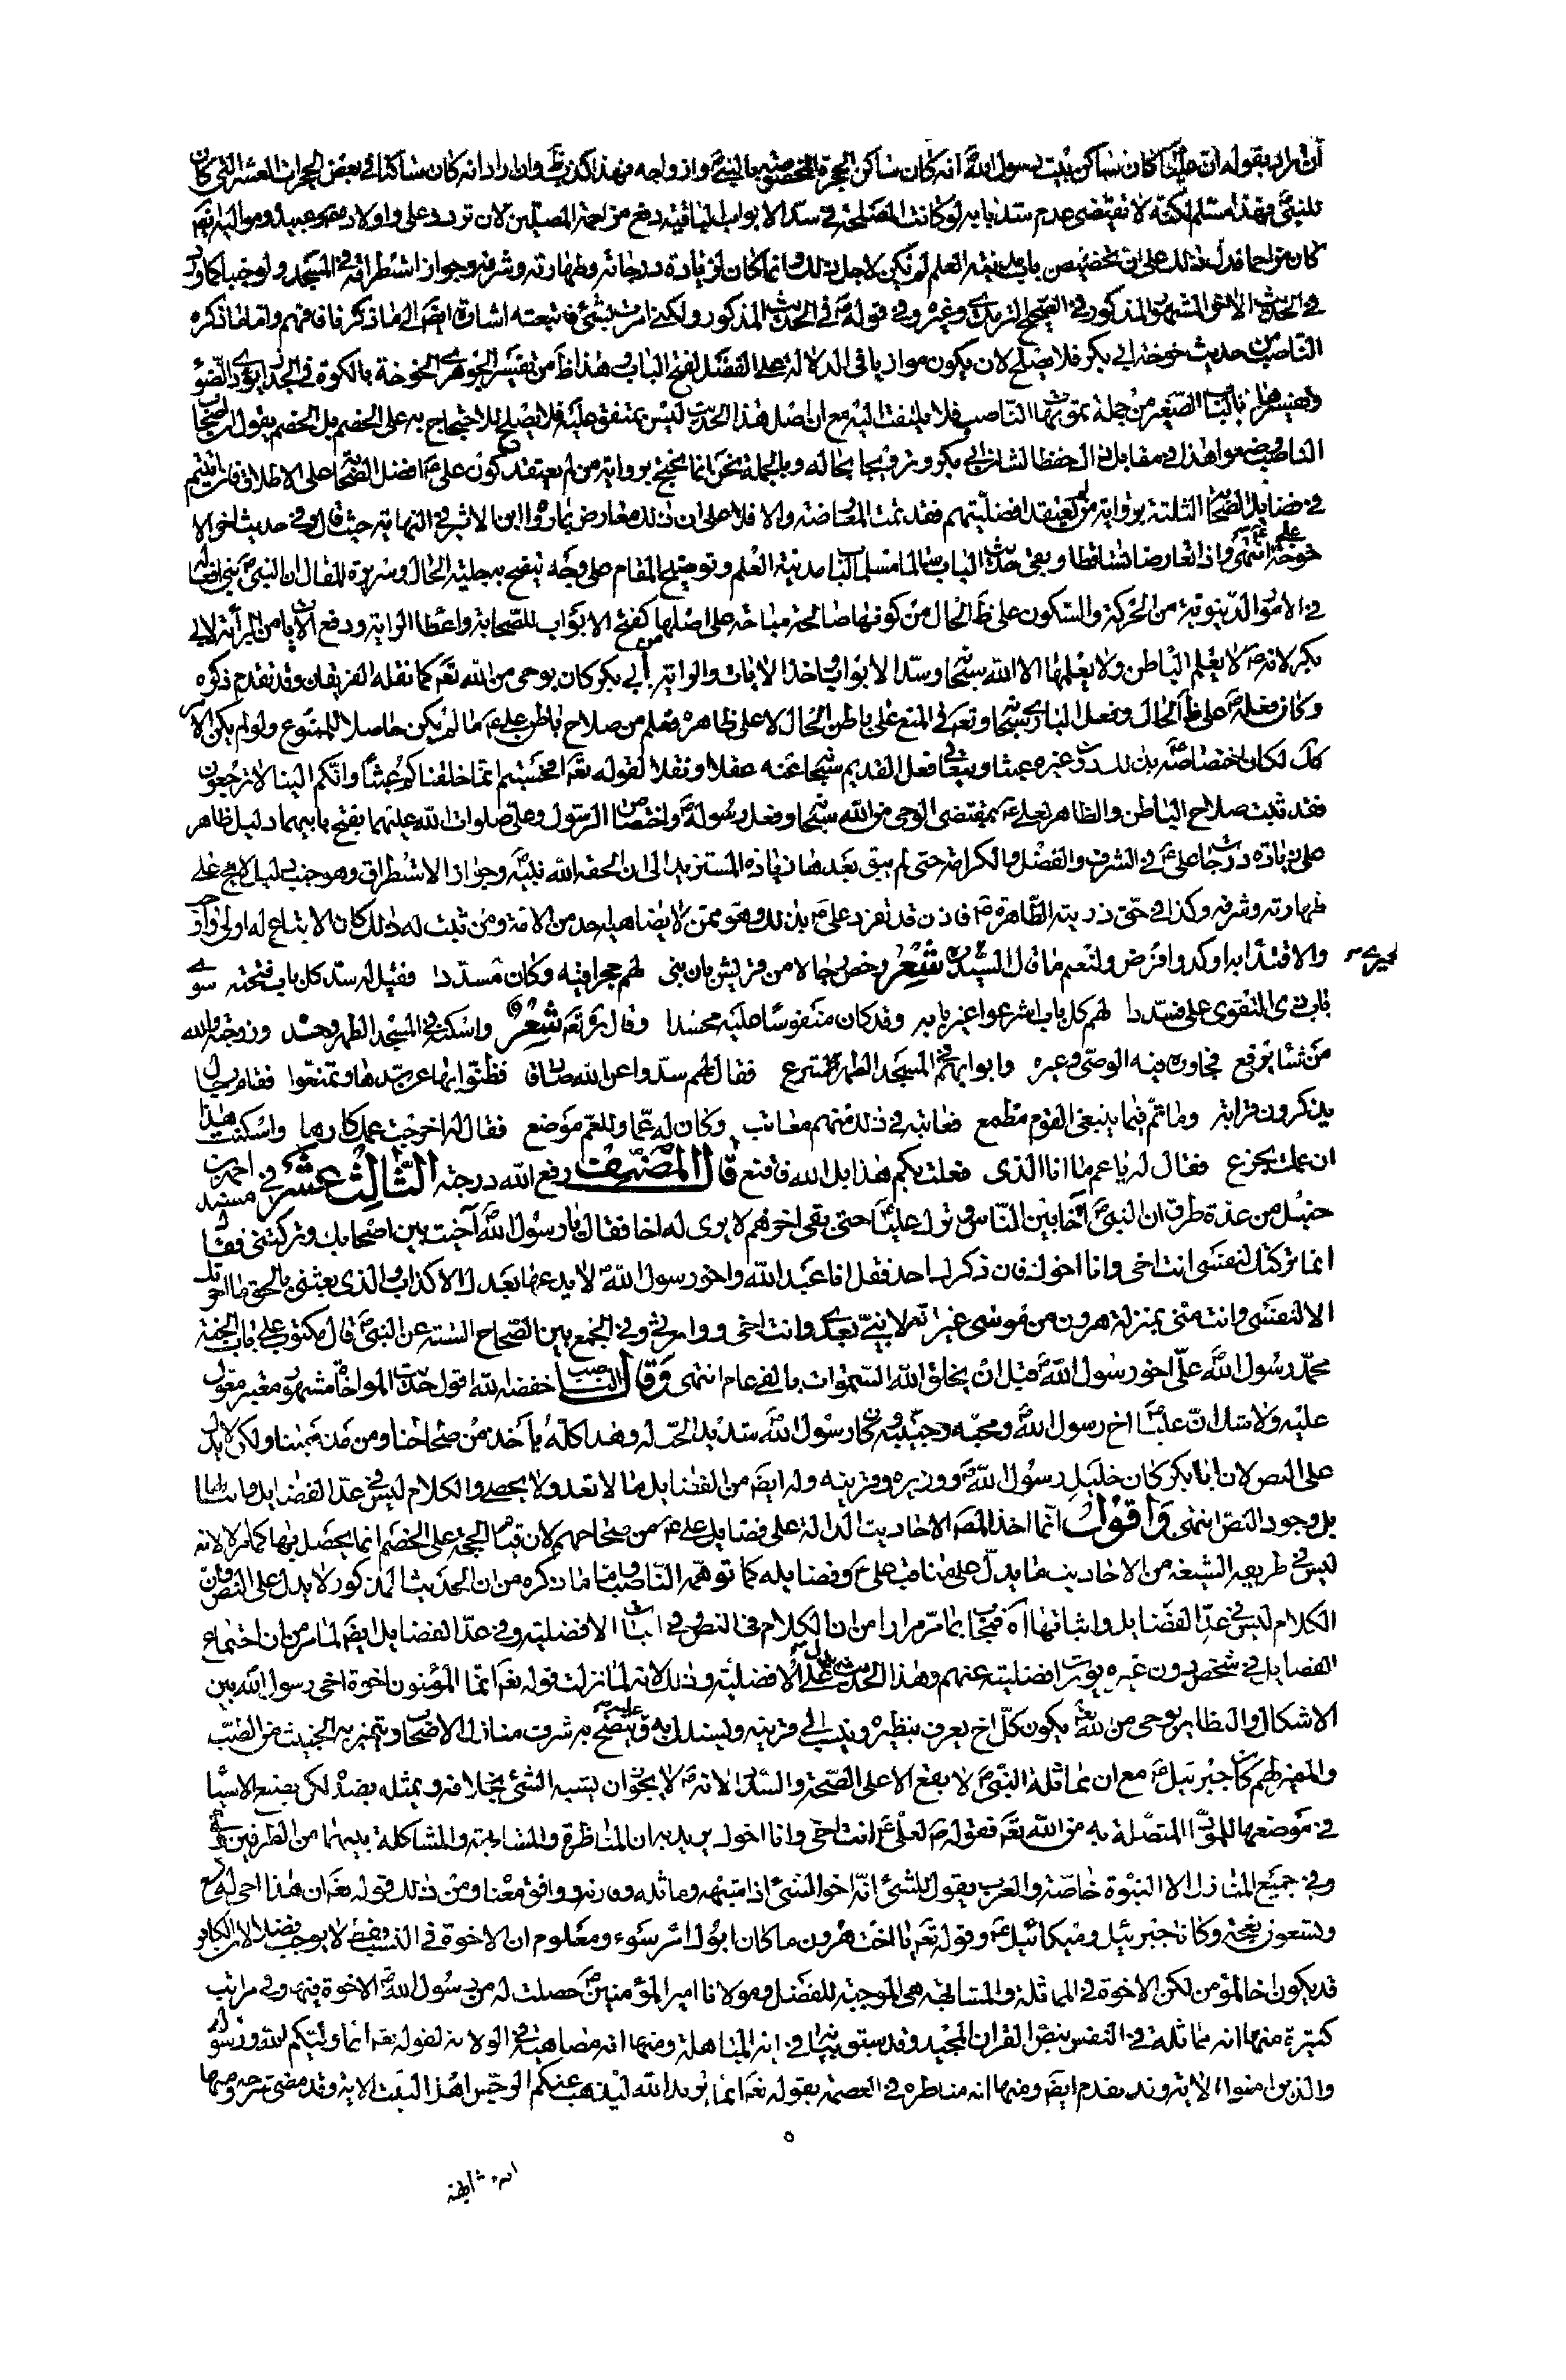 ان اراد بقوله ان عليّا كان ساكن بيت رسول الله انه كان ساكن الحجرة المختصة بالنبي و ازواجه فهذا كذب ظ وان اراد انه كان ساكنا في بعض الحجرات العشر التي كان
للنبي فهذا مسلم لكنه لا يقتضى عدم سد بابه لو كانت المصلحة في سد الابواب الباقية دفع مزاحمة المصلين لان تردد على واولاده مع عبيده ومواليه ايضا
كان مزاحما فدل ذلك على ان تخصيص باب مدينة العلم لم يكن لاجل ذلك وانما كان لزيادة درجاته وطهارته وشرفه وجواز استطراقه في المسجد ولو جنبا كما ورد
في الحديث الاتي المشهور المذكور في الصحيح الترمذي وغيره وفي قوله في الحديث المذكور ولكني امرت بشئ فاتبعته اشارة ايضا الى ما ذكر فافهم واما ما ذكره
الناصب من حديث خوخة ابي بكر فلا يصلح لان يكون موازيا في الدلالة على الفضل لفتح الباب وهذا ظ من تفسير الجوهري الخوخة بالكوة في الجدار يؤدى الضوء
وتفسيرها بالباب الصغير من جملة تمويهات الناصب فلا يلتفت اليه مع ان اصل هذا الحديث ليس بمتفق عليه فلا يصلح للاحتجاج به على الخصم بل الخصم يقول ان اصحاب
الناصب وضعوا هذا في مقابل ذلك حفظا لشان ابي بكر وترويجا بحاله وبالجملة نحن انما نحتج برواية من لم يعتقد كون على افضل الصحابة على الاطلاق فان اتيتم
في فضايل الصحابة الثلثة برواية من لم يعتقد افضليتهم فقد تمت المعارضة والا فلا على ان ذلك معارض بما رواه ابن الاثير في النهاية حيث قال وفي حديث اخر الا
خوخة على انتهى واذا تعارضا تساقطا وبقى حديث الباب سالما مسلما لباب مدينة العلم وتوضيح المقام على وجه يتضح به جلية الحال وسريرة المقال ان النبي بنى افعاله
في الامور الدنيوية من الحركة والسكون على ظ الحال من كونها صالحة مباحة على اصلها كفتح الابواب للصحابة واعطاء الراية ودفع الايات من البرائة لابي
بكر لانه لا يعلم الباطن ولا يعلمها الا الله سبحانه وسد الابواب واخذ الايات والراية من ابي بكر كان بوحى من الله تعه كما نقله الفريقان وقد تقدم ذكره
وكان فعله على ظ الحال وفعل البارى سبحانه وتعه في المنع على باطن الحال لا على ظاهره فعلم من صلاح باطن على ما لم يكن حاصلا للممنوع ولو لم يكن الامر
كك لكان اختصاصه بذلك دون غيره عبثا ويتعالى فعل القديم سبحانه عنه عقلا ونقلا لقوله تعه افحسبتم انما خلقناكم عبثا وانكم الينا لا ترجعون
فقد ثبت صلاح الباطن والظاهر لعلي بمقتضى الوحى من الله سبحانه وفعل رسوله واختصاص الرسول وعلى صلوات الله عليهما بفتح بابيهما دليل ظاهر
على زيادة درجات على في الشرف والفضل والكرامة حتى لم يبق بعدها زيادة المستزيد الى ان الحقه الله بنبيه وجواز الاستطراق وهو جنب دليل واضح على
طهارته وشرفه وكذا في حق ذريته الطاهرة فاذن قد تفرد على بذلك وهو ممن لا يضاهيه احد من الامة ومن ثبت له ذلك كان الاتباع له اولى واوجب
والاقتداء به اوكد وافرض ولنعم ما قال السيد الحميري شعر وخص رجالا من قريش بان بنى لهم حجرا فيه وكان مسددا فقيل له سد كل باب فتحته سوى
باب ذى التقوى على فسددا لهم كل باب اشرعوا غير بابه وقد كان منفوسا عليه محسدا وقال تره شعر واسكنه في المسجد الطهر وحده وزوجته والله
من شاء يرفع فجاوره فيه الوصى وغيره وابوابهم في المسجد الطهر تشرع فقال لهم سدوا عن الله صادقا فظنوا بها عن سدها وتمنعوا فقام رجال
يذكرون قرابة وما ثم فيما يبتغى القوم مطمع فعاتبه في ذلك منهم معاتب وكان له عما وللعم موضع فقال له اخرجت عمك كارها واسكنت هذا
ان عمك يجزع فقال له يا عم ما انا الذى فعلت بكم هذا بل الله فاقنع قال المصنف رفع الله درجته الثالث عشر في مسند احمد بن
حنبل من عدة طرق ان النبي آخا بين الناس وترك عليا حتى بقى اخرهم لا يرى له اخا فقال يا رسول الله آخيت بين اصحابك وتركتنى فقال
انما تركتك لنفسى انت اخى وانا اخوك فان ذكرك احد فقل انا عبد الله واخو رسول الله لا يدعيها بعدك الا كذاب والذى بعثنى بالحق ما اخرتك
الا لنفسى وانت منى بمنزلة هرون من موسى غير انه لا نبي بعدى وانت اخى ووارثي وفي الجمع بين الصحاح الستة عن النبي قال مكتوب على باب الجنة
محمد رسول الله على اخو رسول الله قبل ان يخلق الله السموات بالفى عام انتهى وقال الناصب خفضه الله اقول حديث المواخاة مشهور معتبر معول
عليه ولا شك ان عليا اخ رسول الله ومحبه وحبيبه وكان رسول الله شديد الحب له وهذا كله ياخذ من صحاحنا ومن مذهبنا ولكن لا يدل
على النص لان ابا بكر كان خليل رسول الله ووزيره وقرينه وله ايضا من الفضايل ما لا تعد ولا يحصى والكلام ليس في عد الفضايل واثباتها
بل وجود النص انتهى واقول انما اخذ المصه الاحاديث الدالة على فضايل على من صحاحهم لان قيام الحجة على الخصم انما يحصل بها كما مر لا لانه
ليس في طريقه الشيعة من الاحاديث ما يدل على مناقب على وفضايله كما توهمه الناصب واما ما ذكره من ان الحديث المذكور لا يدل على النص وان
الكلام ليس في عد الفضايل واثباتها اه فيجاب بما مر مرارا من ان الكلام في النص وفي اثبات الافضلية وفي عد الفضايل ايضا لما مر من ان اجتماع
الفضايل في شخص دون غيره يورث افضليته عنهم وهذا الحديث يدل على الافضلية وذلك لانه لما نزلت قوله تعه انما المؤمنون اخوة اخى رسول الله بين
الاشكال والنظاير بوحى من الله تعه يكون كل اخ يعرف بنظيره وينسب الى قرينه ويستدل به عليه ويتضح به شرف منازل الاصحاب ويتميز به الخبيث من الطيب
والمعين لهم كان جبرئيل مع ان مماثلة النبي لا يقع الا على الصحة والسداد لانه لا يجوز ان يشبه الشئ بخلافه ويمثله بضده لكن يضع الاشياء
في موضعها للمواد المتصلة به من الله تعه فقوله لعلى انت اخى وانا اخوك يريد به ان المناظرة والمشابهة والمشاكلة بينهما من الطرفين
وفي جميع المنازل الا النبوة خاصة والعرب يقول للشئ انه اخو الشئ اذا شبهه وماثله وقارنه ووافق معناه ومن ذلك قوله تعه ان هذا اخى له تسع
وتسعون نعجة وكانا جبرئيل وميكائيل وقوله تعه يا اخت هرون ما كان ابوك امرء سوء ومعلوم ان الاخوة في النسب فقط لا يوجب فضلا لان الكافر
قد يكون اخا لمؤمن لكن الاخوة في المماثلة والمشابهة هى الموجبة للفضل ومولانا امير المؤمنين حصلت له من رسول الله الاخوة فيها وفي مراتب
كثيرة منها انه مماثله في النفس بنص القران المجيد وقد سبق بيانها في اية المباهلة ومنها انه مضاهيه في الولاية لقوله تعه انما وليكم الله ورسوله
والذين امنوا الاية وقد تقدم ايضا ومنها انه مناظره في العصمة بقوله تعه انما يريد الله ليذهب عنكم الرجس اهل البيت الاية وقد مضى شرحه ومنها